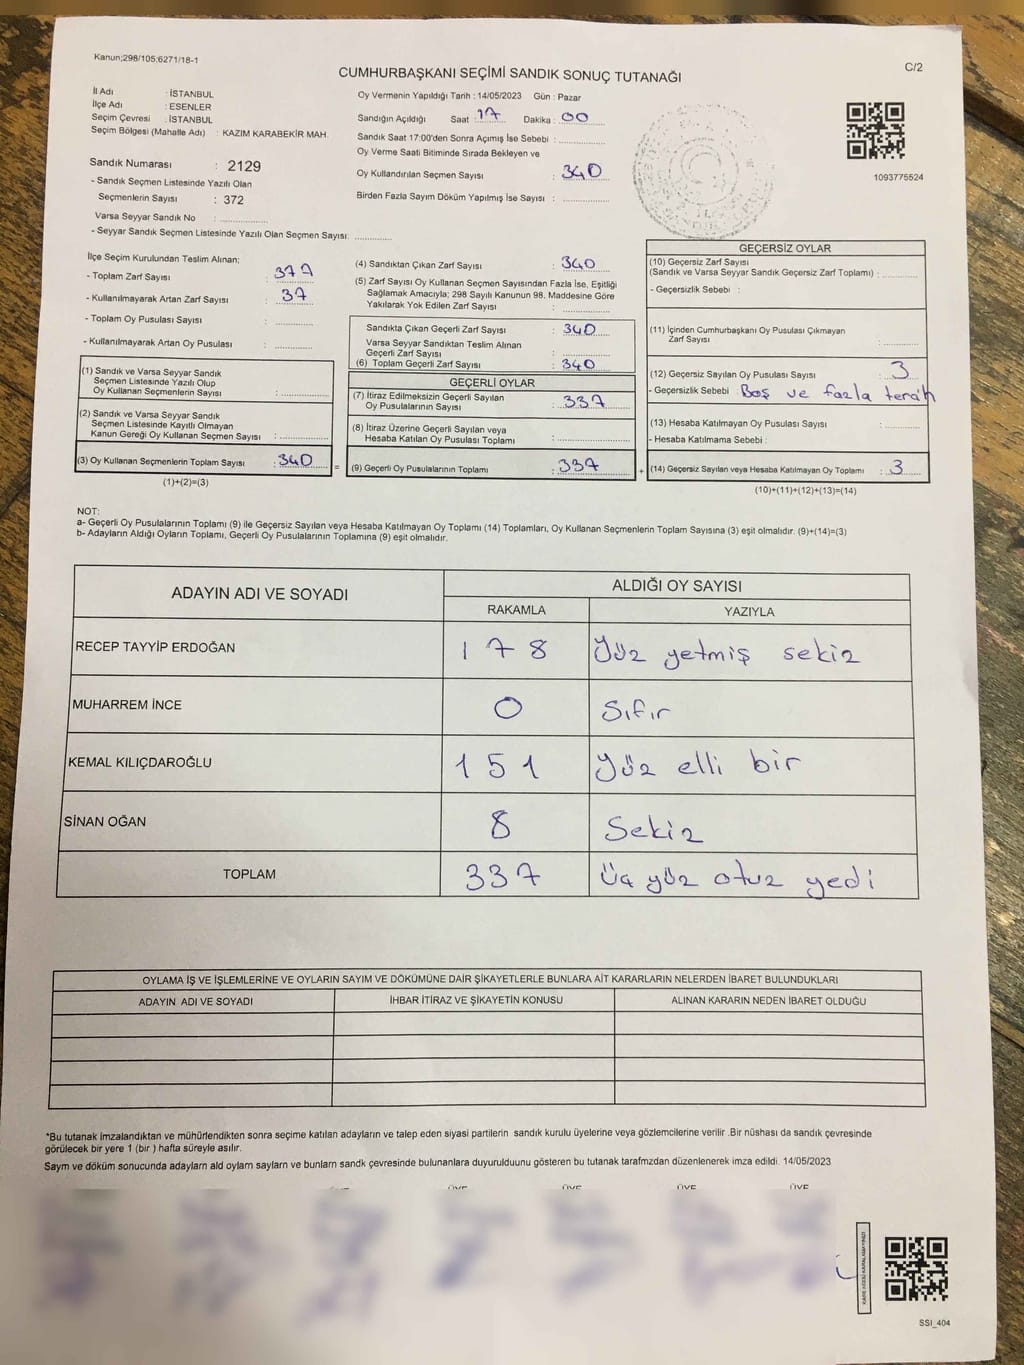 Kanun;298/105;6271/18-1
C/2
CUMHURBAŞKANI SEÇİMİ SANDIK SONUÇ TUTANAĞI
İl Adı : İSTANBUL
İlçe Adı : ESENLER
Seçim Çevresi : İSTANBUL
Seçim Bölgesi (Mahalle Adı) : KAZIM KARABEKİR MAH.
Sandık Numarası : 2129
- Sandık Seçmen Listesinde Yazılı Olan
Seçmenlerin Sayısı : 372
Varsa Seyyar Sandık No :
- Seyyar Sandık Seçmen Listesinde Yazılı Olan Seçmen Sayısı:
Oy Vermenin Yapıldığı Tarih : 14/05/2023 Gün : Pazar
Sandığın Açıldığı Saat : 17 Dakika : 00
Sandık Saat 17:00'den Sonra Açımış İse Sebebi :
Oy Verme Saati Bitiminde Sırada Bekleyen ve
Oy Kullandırılan Seçmen Sayısı : 340
Birden Fazla Sayım Döküm Yapılmış İse Sayısı :
1093775524
İlçe Seçim Kurulundan Teslim Alınan;
- Toplam Zarf Sayısı : 377
- Kullanılmayarak Artan Zarf Sayısı : 37
- Toplam Oy Pusulası Sayısı :
- Kullanılmayarak Artan Oy Pusulası :
(1) Sandık ve Varsa Seyyar Sandık
Seçmen Listesinde Yazılı Olup
Oy Kullanan Seçmenlerin Sayısı :
(2) Sandık ve Varsa Seyyar Sandık
Seçmen Listesinde Kayıtlı Olmayan
Kanun Gereği Oy Kullanan Seçmen Sayısı :
(3) Oy Kullanan Seçmenlerin Toplam Sayısı : 340
(1)+(2)=(3)
(4) Sandıktan Çıkan Zarf Sayısı : 340
(5) Zarf Sayısı Oy Kullanan Seçmen Sayısından Fazla İse, Eşitliği
Sağlamak Amacıyla; 298 Sayılı Kanunun 98. Maddesine Göre
Yakılarak Yok Edilen Zarf Sayısı :
Sandıkta Çıkan Geçerli Zarf Sayısı : 340
Varsa Seyyar Sandıktan Teslim Alınan
Geçerli Zarf Sayısı :
(6) Toplam Geçerli Zarf Sayısı : 340
GEÇERLİ OYLAR
(7) İtiraz Edilmeksizin Geçerli Sayılan
Oy Pusulalarının Sayısı : 337
(8) İtiraz Üzerine Geçerli Sayılan veya
Hesaba Katılan Oy Pusulası Toplamı :
= (9) Geçerli Oy Pusulalarının Toplamı : 337 +
GEÇERSİZ OYLAR
(10) Geçersiz Zarf Sayısı
(Sandık ve Varsa Seyyar Sandık Geçersiz Zarf Toplamı) :
- Geçersizlik Sebebi :
(11) İçinden Cumhurbaşkanı Oy Pusulası Çıkmayan
Zarf Sayısı :
(12) Geçersiz Sayılan Oy Pusulası Sayısı : 3
- Geçersizlik Sebebi : Boş ve fazla tercih
(13) Hesaba Katılmayan Oy Pusulası Sayısı :
- Hesaba Katılmama Sebebi :
(14) Geçersiz Sayılan veya Hesaba Katılmayan Oy Toplamı : 3
(10)+(11)+(12)+(13)=(14)
NOT:
a- Geçerli Oy Pusulalarının Toplamı (9) ile Geçersiz Sayılan veya Hesaba Katılmayan Oy Toplamı (14) Toplamları, Oy Kullanan Seçmenlerin Toplam Sayısına (3) eşit olmalıdır. (9)+(14)=(3)
b- Adayların Aldığı Oyların Toplamı, Geçerli Oy Pusulalarının Toplamına (9) eşit olmalıdır.
ADAYIN ADI VE SOYADI ALDIĞI OY SAYISI
RAKAMLA YAZIYLA
RECEP TAYYİP ERDOĞAN 178 Yüz yetmiş sekiz
MUHARREM İNCE 0 Sıfır
KEMAL KILIÇDAROĞLU 151 Yüz elli bir
SİNAN OĞAN 8 Sekiz
TOPLAM 337 Üç yüz otuz yedi
OYLAMA İŞ VE İŞLEMLERİNE VE OYLARIN SAYIM VE DÖKÜMÜNE DAİR ŞİKAYETLERLE BUNLARA AİT KARARLARIN NELERDEN İBARET BULUNDUKLARI
ADAYIN ADI VE SOYADI İHBAR İTİRAZ VE ŞİKAYETİN KONUSU ALINAN KARARIN NEDEN İBARET OLDUĞU
*Bu tutanak imzalandıktan ve mühürlendikten sonra seçime katılan adayların ve talep eden siyasi partilerin sandık kurulu üyelerine veya gözlemcilerine verilir .Bir nüshası da sandık çevresinde
görülecek bir yere 1 (bir ) hafta süreyle asılır.
Sayım ve döküm sonucunda adaylarn ald oylarn saylarn ve bunlarn sandk çevresinde bulunanlara duyurulduunu gösteren bu tutanak tarafmzdan düzenlenerek imza edildi. 14/05/2023
ÜYE ÜYE ÜYE ÜYE
SSI_404